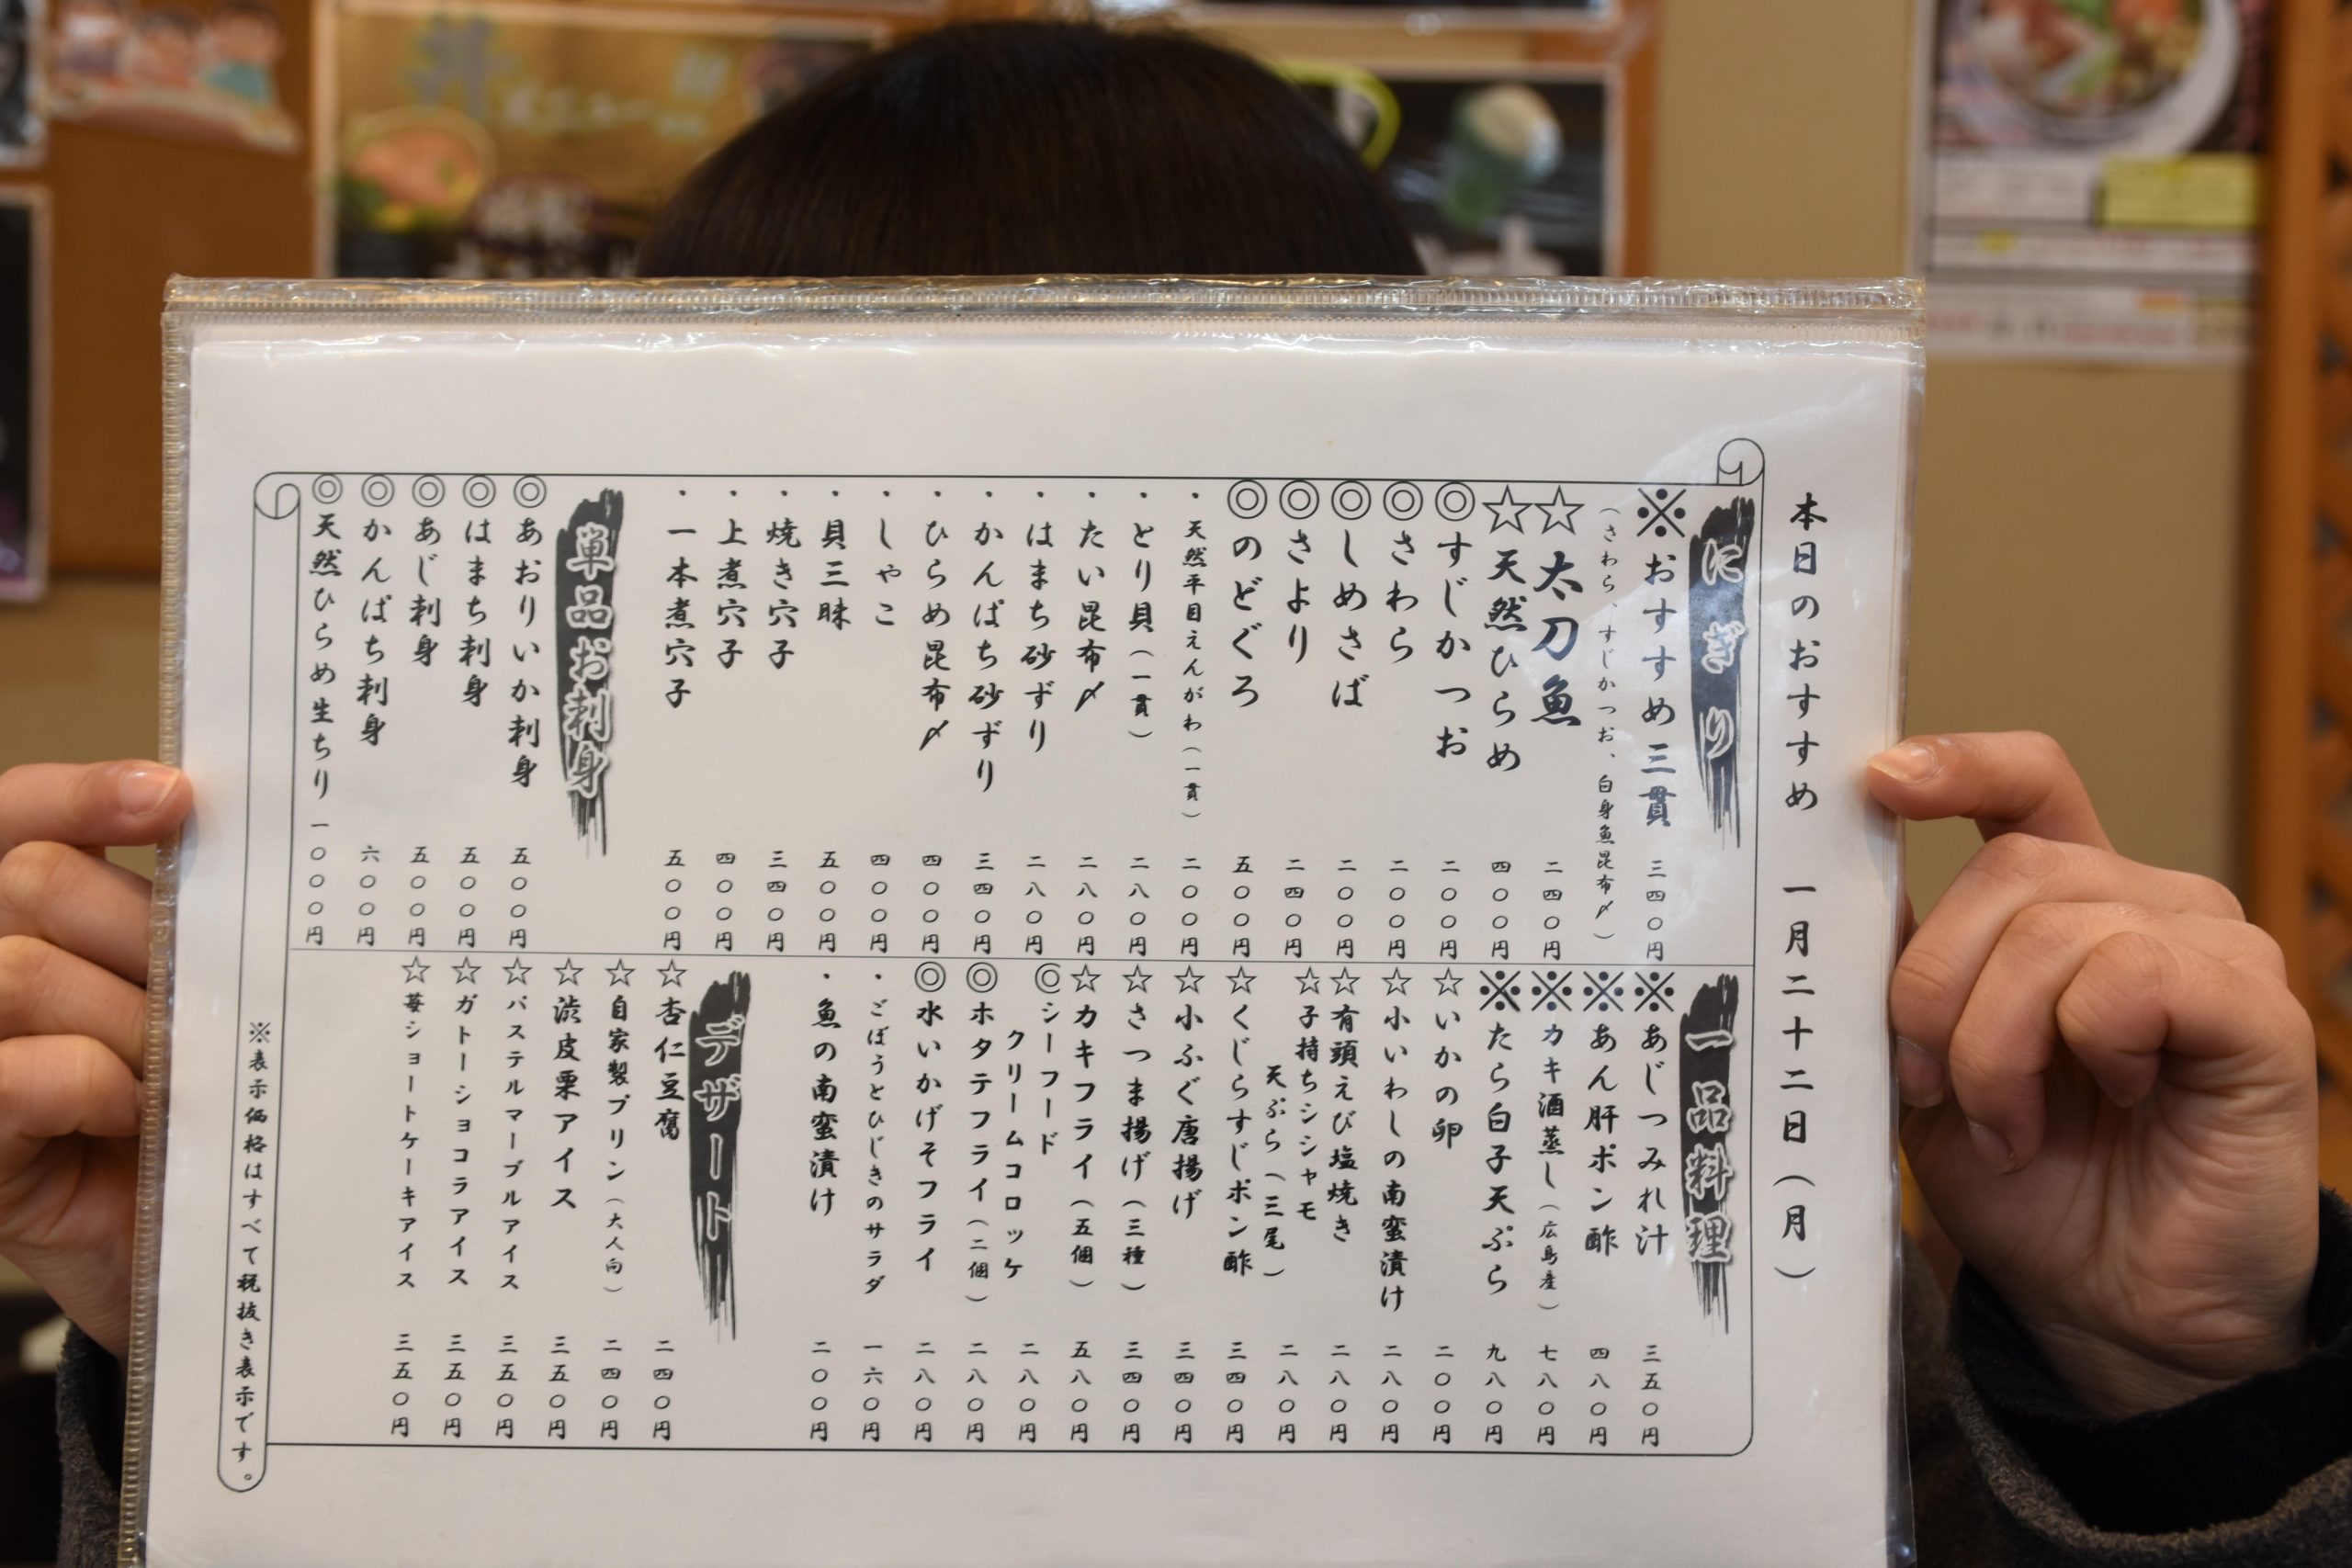 本日のおすすめ 一月二十二日（月）
にぎり
※おすすめ三貫 三四〇円
（さわら、すじかつお、白身魚昆布〆）
☆太刀魚 二四〇円
☆天然ひらめ 四〇〇円
◎すじかつお 二〇〇円
◎さわら 二〇〇円
◎しめさば 二〇〇円
◎さより 二四〇円
◎のどぐろ 五〇〇円
・天然平目えんがわ（一貫） 二〇〇円
・とり貝（一貫） 二八〇円
・たい昆布〆 二八〇円
・はまち砂ずり 二八〇円
・かんぱち砂ずり 三四〇円
・ひらめ昆布〆 四〇〇円
・しゃこ 四〇〇円
・貝三昧 五〇〇円
・焼き穴子 三四〇円
・上煮穴子 四〇〇円
・一本煮穴子 五〇〇円
単品お刺身
◎あおりいか刺身 五〇〇円
◎はまち刺身 五〇〇円
◎あじ刺身 五〇〇円
◎かんぱち刺身 六〇〇円
◎天然ひらめ生ちり 一〇〇〇円
一品料理
※あじつみれ汁 三五〇円
※あん肝ポン酢 四八〇円
※カキ酒蒸し（広島産） 七八〇円
※たら白子天ぷら 九八〇円
☆いかの卵 二〇〇円
☆小いわしの南蛮漬け 二八〇円
☆有頭えび塩焼き 二八〇円
☆子持ちシシャモ
天ぷら（三尾） 二八〇円
☆くじらすじポン酢 三四〇円
☆小ふぐ唐揚げ 三四〇円
☆さつま揚げ（三種） 三四〇円
☆カキフライ（五個） 五八〇円
◎シーフード
クリームコロッケ 二八〇円
◎ホタテフライ（二個） 二八〇円
◎水いかげそフライ 二八〇円
・ごぼうとひじきのサラダ 一六〇円
・魚の南蛮漬け 二〇〇円
デザート
☆杏仁豆腐 二四〇円
☆自家製プリン（大人向） 二四〇円
☆渋皮栗アイス 三五〇円
☆パステルマーブルアイス 三五〇円
☆ガトーショコラアイス 三五〇円
☆苺ショートケーキアイス 三五〇円
※表示価格はすべて税抜き表示です。